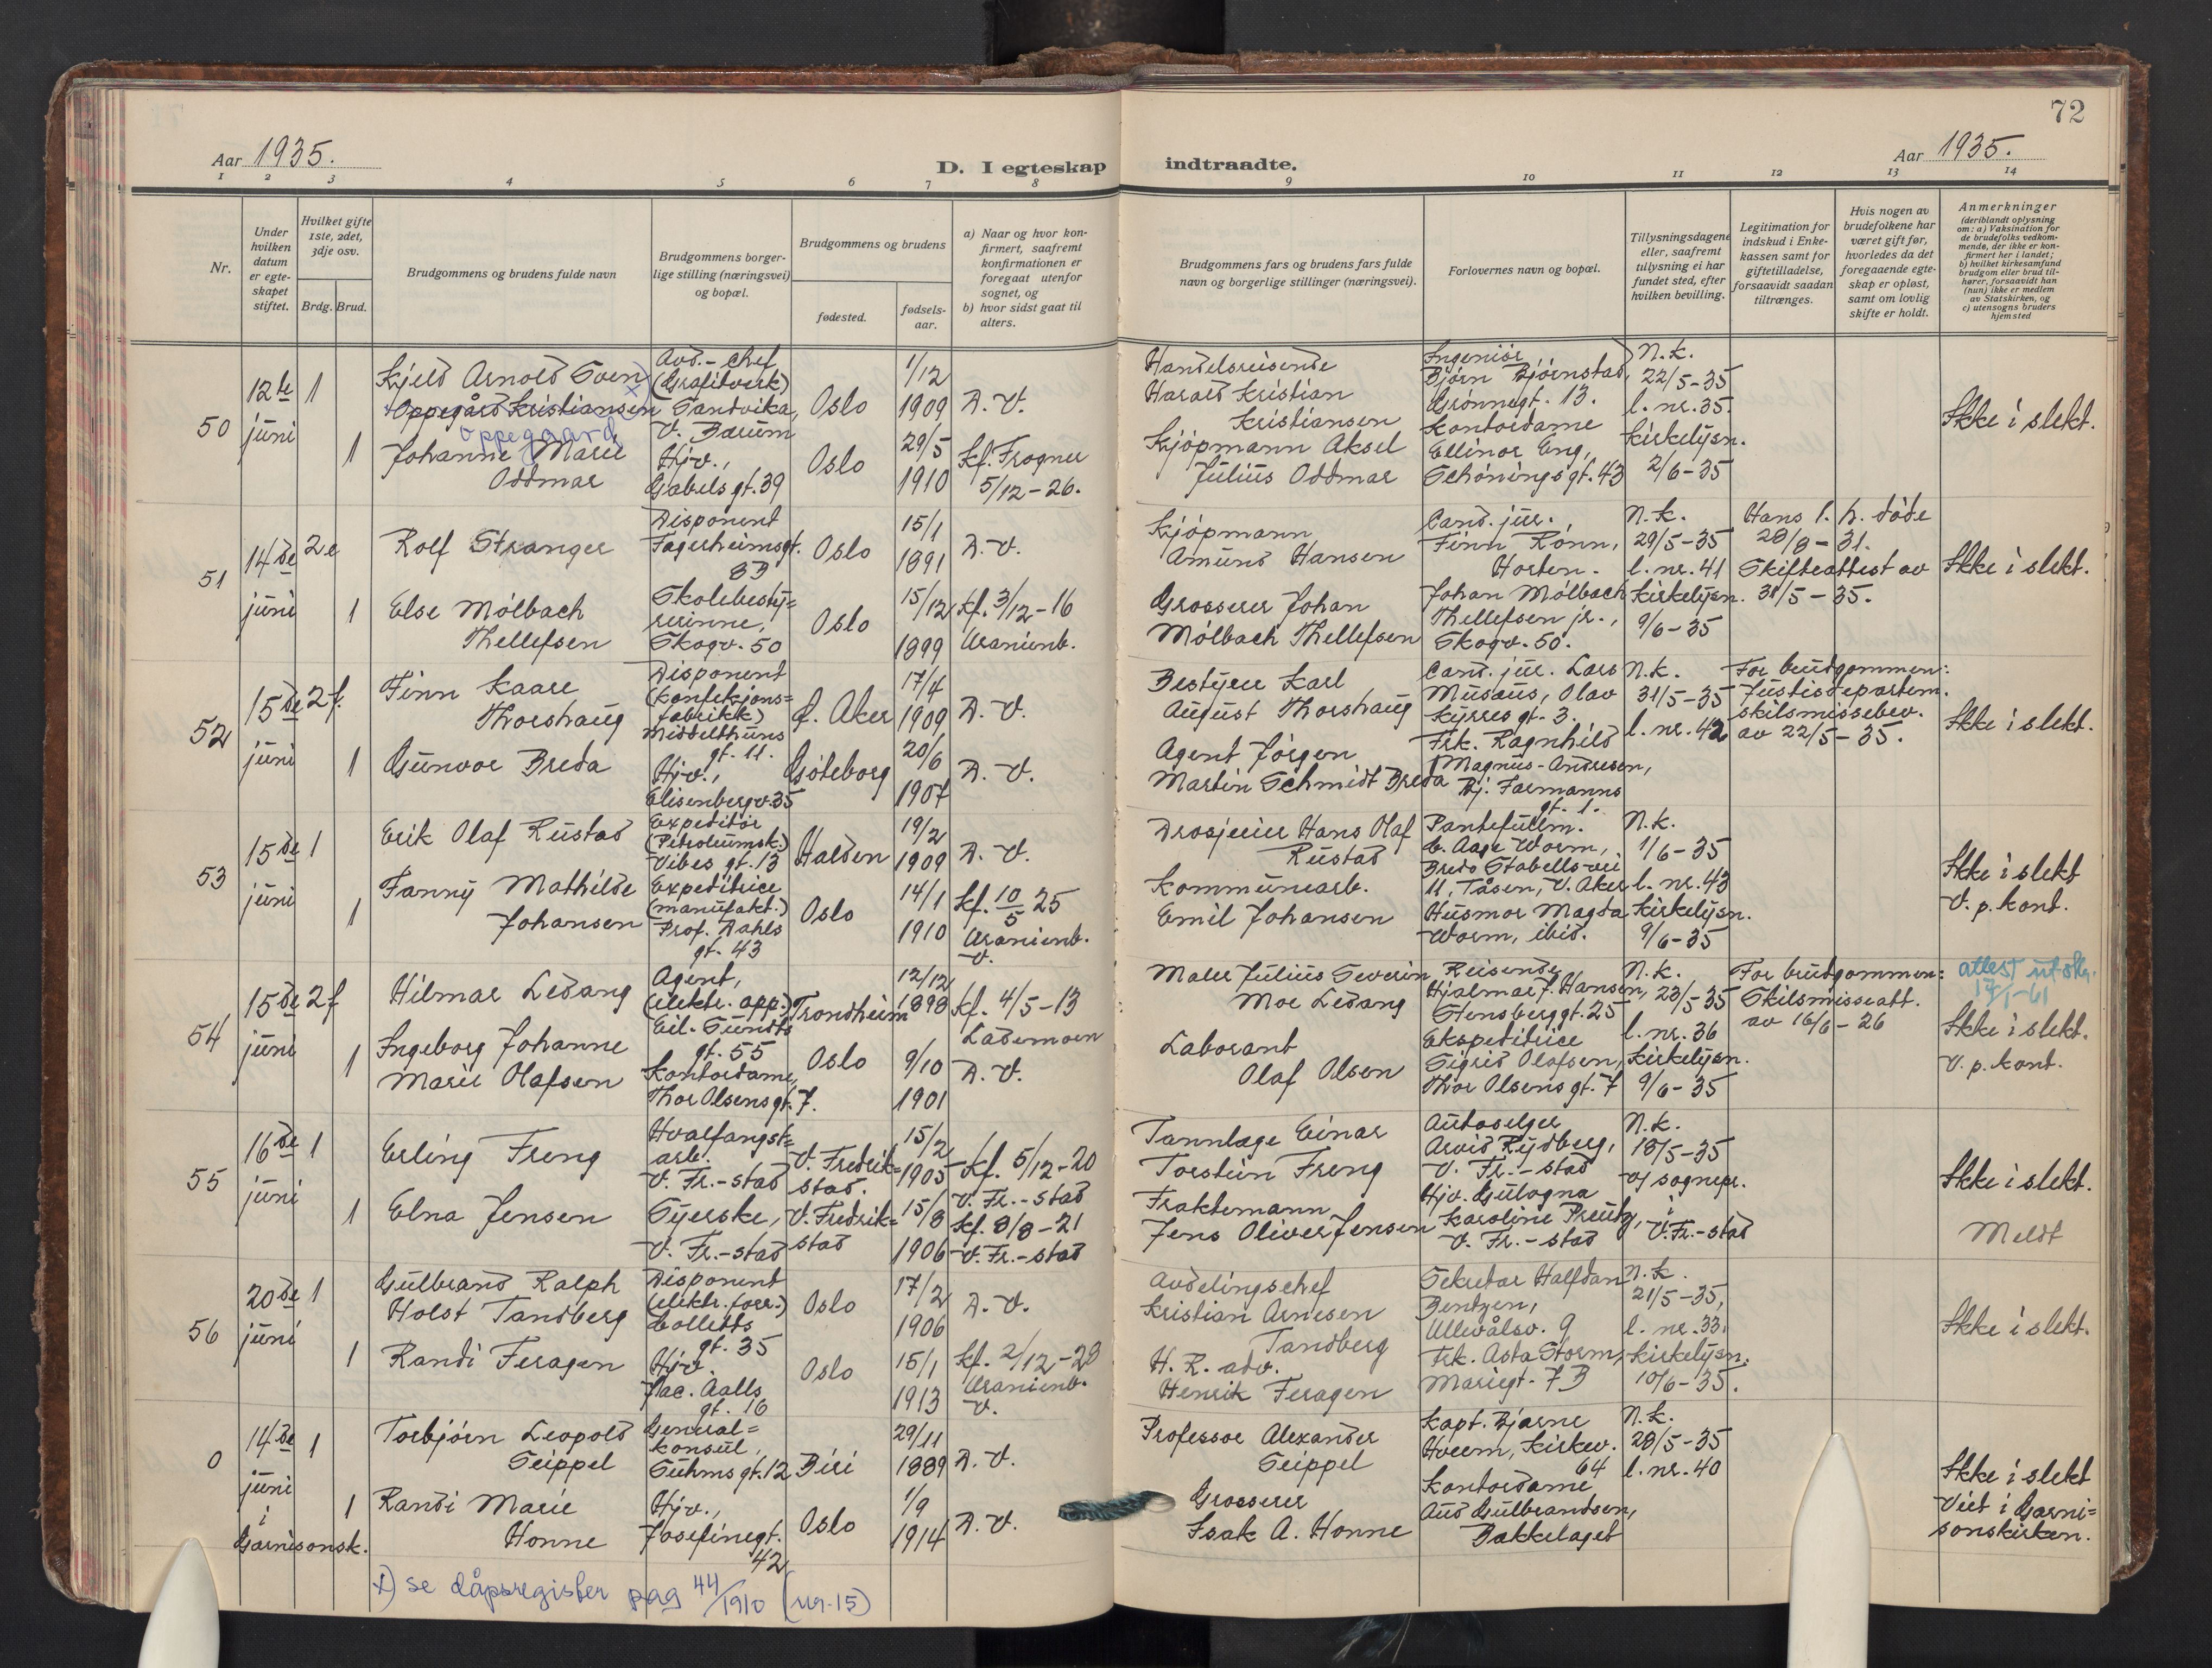 72
Aar 1935.
D. I egteskap indtraadte.
Aar 1935.
1 2 3 4 5 6 7 8 9 10 11 12 13 14
Nr.
Under hvilken datum er egteskapet stiftet.
Hvilket gifte 1ste, 2det, 3dje osv.
Brdg. Brud.
Brudgommens og brudens fulde navn
Brudgommens borgerlige stilling (næringsvei) og bopæl.
Brudgommens og brudens
fødested.
fødselsaar.
a) Naar og hvor konfirmert, saafremt konfirmationen er foregaat utenfor sognet, og
b) hvor sidst gaat til alters.
Brudgommens fars og brudens fars fulde navn og borgerlige stillinger (næringsvei).
Forlovernes navn og bopæl.
Tillysningsdagene eller, saafremt tullysning ei har fundet sted, efter hvilken bevilling.
Legitimation for indskud i Enkekassen samt for giftetilladelse, forsaavidt saadan tiltrænges.
Hvis nogen av brudefolkene har været gift før, hvorledes da det foregaaende egteskap er opløst, samt om lovlig skifte er holdt.
Anmerkninger
(deriblandt oplysning om: a) Vaksination for de brudefolks vedkommende, der ikke er konfirmert her i landet;
b) hvilket kirkesamfund brudgom eller brud tilhører, forsaavidt han (hun) ikke er medlem av Statskirken, og
c) utensogns bruders hjemsted
50
12te juni
1
Kjeld Arnold Sven x)
Oppegård Kristiansen
oppegaard
Avd.-chef
(Grafitverk)
Sandvika,
V. Bærum
Oslo
1/12
1909
D. V.
Handelsreisende
Harald Kristian
Kristiansen
Ingeniør
Bjørn Bjørnstad,
Grønnegt. 13.
N. k.
22/5-35
l. nr. 35.
Ikke i slekt.
1
Johanne Marie
Oddmar
Hjv.,
Gabels gt. 39
Oslo
29/5
1910
kf. Frogner
5/12-26.
Kjøpmann Aksel
Julius Oddmar
Kontordame
Ellinor Eng,
Schønings gt. 43
kirkelysn.
2/6-35
51
14de juni
2e
Rolf Stranger
Disponent
Fagerheimsgt.
8B
Oslo
15/1
1891
D. V.
Kjøpmann
Amund Hansen
Cand. jur.,
Finn Rønn,
Horten.
N. k.
29/5-35
l. nr. 41
Hans 1. h. døde
28/8-31.
Skifteattest av
31/5-35.
Ikke i slekt.
1
Else Mølbach
Thellefsen
Skolebesty=
rerinne,
Skogv. 50
Oslo
15/12
1899
kf. 3/12-16
Uranienb.
Grosserer Johan
Mølbach Thellefsen
Johan Mølbach
Thellefsen jr.,
Skogv. 50.
kirkelysn.
9/6-35
52
15de juni
2 f.
Finn Kaare
Thorshaug
Disponent
(konfeksjons=
fabrikk)
Middelthuns
gt. 11.
f. Aker
17/4
1909
D. V.
Bestyrer Karl
August Thorshaug
Cand. jur. Lars
Musæus, Olav
Kyrres gt. 3.
N. k.
31/5-35
l. nr. 42
For brudgommen:
Justisdepartem.
skilsmissebev.
av 22/5-35.
Ikke i slekt.
1
Gunvor Breda
Hjv.,
Elisenbergv. 35
Göteborg
20/6
1907
D. V.
Agent Jørgen
Martin Schmidt Breda
Frk. Ragnhild
Magnus-Andresen,
Bj. Farmanns
gt. 1.
53
15de juni
1
Erik Olaf Rustad
Expeditør
(Petroleumsk.)
Vibes gt. 13
Halden
19/2
1909
D. V.
Drosjeeier Hans Olaf
Rustad
Pantefullm.
C. Aage Worm,
Bredo Stabells vei
11, Tåsen, V. Aker
N. k.
1/6-35
l. nr. 43
Ikke i slekt
V. p. kont.
1
Fanny Mathilde
Johansen
Expeditrice
(manufakt.)
Prof. Dahls
gt. 43
Oslo
14/1
1910
kf. 10/5 25
Uranienb.
V.
Kommunearb.
Emil Johansen
Husmor Magda
Worm, ibid.
kirkelysn.
9/6-35
54
15de juni
2 f
Hilmar Ledang
Agent,
(elektr. app.)
Eil. Sundts
gt. 55
Trondheim
12/12
1898
kf. 4/5-13
Lademoen
Maler Julius Severin
Moe Ledang
Reisende
Hjalmar J. Hansen,
Stensberggt. 25
N. k.
23/5-35
l. nr. 36
For brudgommen:
Skilsmisseatt.
av 16/6-26
attest utskr.
17/1-61
Ikke i slekt.
V. p. kont.
1
Ingeborg Johanne
Marie Olafsen
Kontordame,
Thor Olsens gt. 7.
Oslo
9/10
1901
D. V.
Laborant
Olaf Olsen
Ekspeditrice
Sigrid Olafsen,
Thor Olsens gt. 7
kirkelysn.
9/6-35
55
16de juni
1
Erling Freng
Hvalfangst=
arb.
V. Fr.-stad
V. Fredrik=
stad.
15/2
1905
kf. 5/12-20
V. Fr.-stad
Tannlæge Einar
Torstein Freng
Autoselger
Arvid Rydberg,
V. Fr.-stad
N. k.
18/5-35
v/ sognepr.
i
V. Fr.-stad
Ikke i slekt.
Meldt
1
Elna Jensen
Syerske,
V. Fr.-stad
V. Fredrik=
stad
15/8
1906
kf. 8/8-21
V. Fr.-stad
Fraktemann
Jens Oliver Jensen
Hjv. Gulogna
Karoline Preutz,
V. Fr.-stad
56
20de juni
1
Gulbrand Ralph
Holst Tandberg
Disponent
(elektr. forr.)
Colletts
gt. 35
Oslo
17/2
1906
D. V.
Avdelingschef
Kristian Arnesen
Tandberg
Sekretær Halfdan
Bentzen,
Ullevålsv. 9
N. k.
21/5-35,
l. nr. 33.
Ikke i slekt.
1
Randi Feragen
Hjv.
Jac. Aalls
gt. 16
Oslo
15/1
1913
kf. 2/12-28
Uranienb.
V.
H. R. adv.
Henrik Feragen
Frk. Asta Storm,
Mariegt. 7 B
kirkelysn.
10/6-35.
0
14de juni
i
Garnisonsk.
1
Torbjørn Leopold
Seippel
General=
konsul,
Suhms gt. 12
Biri
29/11
1889
D. V.
Professor Alexander
Seippel
Kapt. Bjarne
Hveem, Kirkev.
64
N. k.
28/5-35
l. nr. 40
Ikke i slekt
Viet i Garni=
sonskirken.
1
Randi Marie
Honne
Hjv.,
Josefinegt.
42
Oslo
1/9
1914
D. V.
Grosserer
Isak A. Honne
Kontordame
Aud Gulbrandsen,
Bakkelaget
x) se dåpsregister pag 44/1910 (nr. 15)